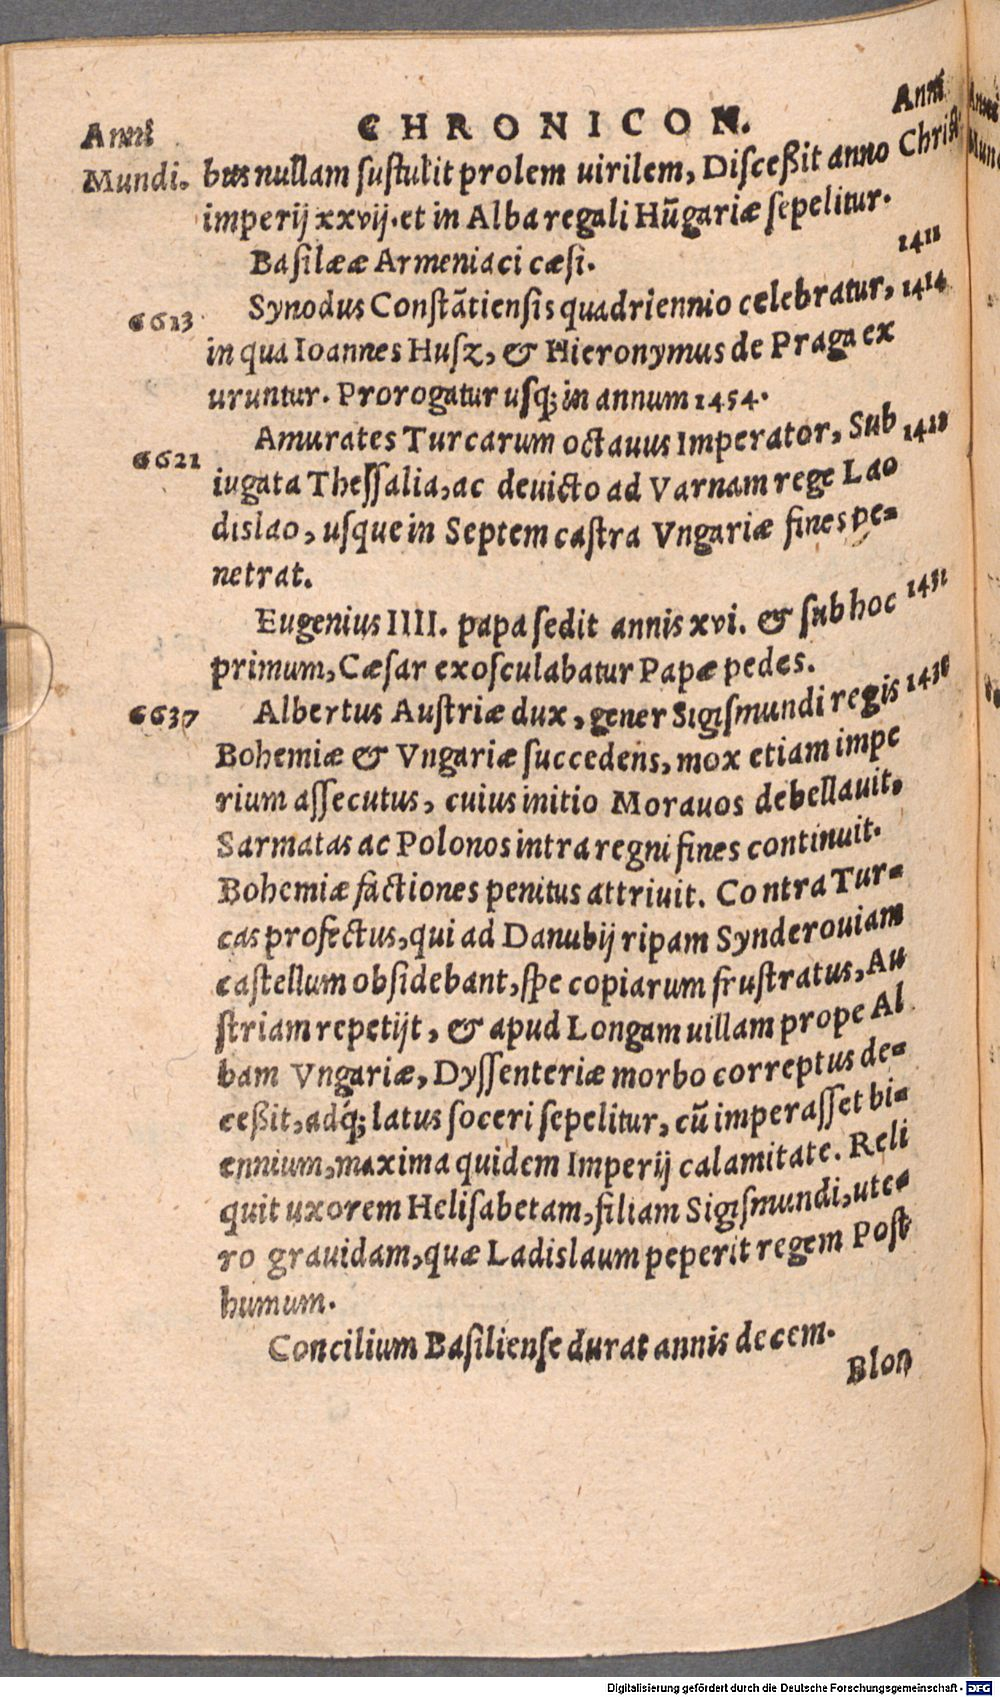 CHRONICON.
Anni
Mundi.
Anni
Christi
bus nullam sustulit prolem uirilem, Disceßit anno
imperij xxvij. et in Alba regali Hũgariæ sepelitur.
Basileæ Armeniaci cæsi. 1411
6613 Synodus Constãtiensis quadriennio celebratur, 1414
in qua Ioannes Husz, & Hieronymus de Praga ex
uruntur. Prorogatur usq; in annum 1454.
6621 Amurates Turcarum octauus Imperator, Sub 1422
iugata Thessalia, ac deuicto ad Varnam rege Lao
dislao, usque in Septem castra Vngariæ fines pe-
netrat.
Eugenius IIII. papa sedit annis xvi. & sub hoc 1431
primum, Cæsar exosculabatur Papæ pedes.
6637 Albertus Austriæ dux, gener Sigismundi regis 1438
Bohemiæ & Vngariæ succedens, mox etiam impe
rium assecutus, cuius initio Morauos debellauit,
Sarmatas ac Polonos intra regni fines continuit.
Bohemiæ factiones penitus attriuit. Contra Tur-
cas profectus, qui ad Danubij ripam Synderouiam
castellum obsidebant, spe copiarum frustratus, Au
striam repetijt, & apud Longam uillam prope Al
bam Vngariæ, Dyssenteriæ morbo correptus de-
ceßit, adq́; latus soceri sepelitur, cũ imperasset bi-
ennium, maxima quidem Imperij calamitate. Reli
quit uxorem Helisabetam, filiam Sigismundi, ute-
ro grauidam, quæ Ladislaum peperit regem Post
humum.
Concilium Basiliense durat annis decem.
Blon
Digitalisierung gefördert durch die Deutsche Forschungsgemeinschaft - DFG